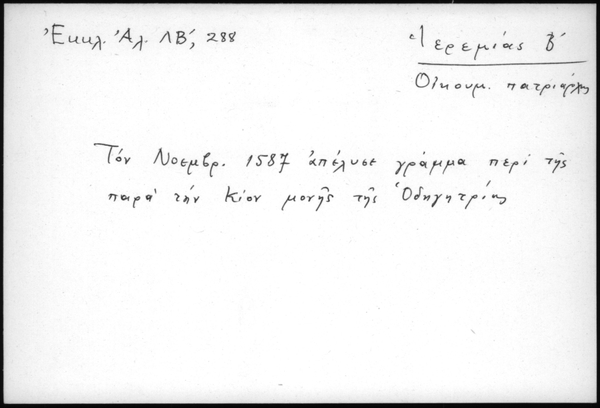 Ἐκκλ. Ἀλ. ΛΒ', 288
Ἱερεμίας Β'
Οἰκουμ. πατριάρχης
Τόν Νοεμβρ. 1587 ἀπέλυσε γράμμα περί τῆς
παρά τήν Κίον μονῆς τῆς Ὁδηγητρίας